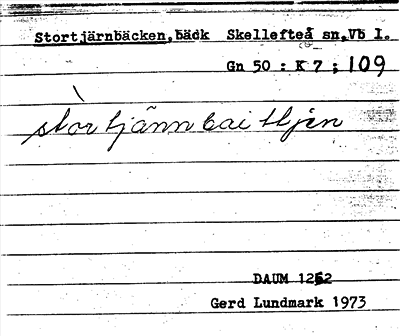 Stortjärnbäcken, bäck Skellefteå sn, Vb l.
Gn 50 : K 7 ; 109
stòrtjännbaittjen
DAUM 1262
Gerd Lundmark 1973